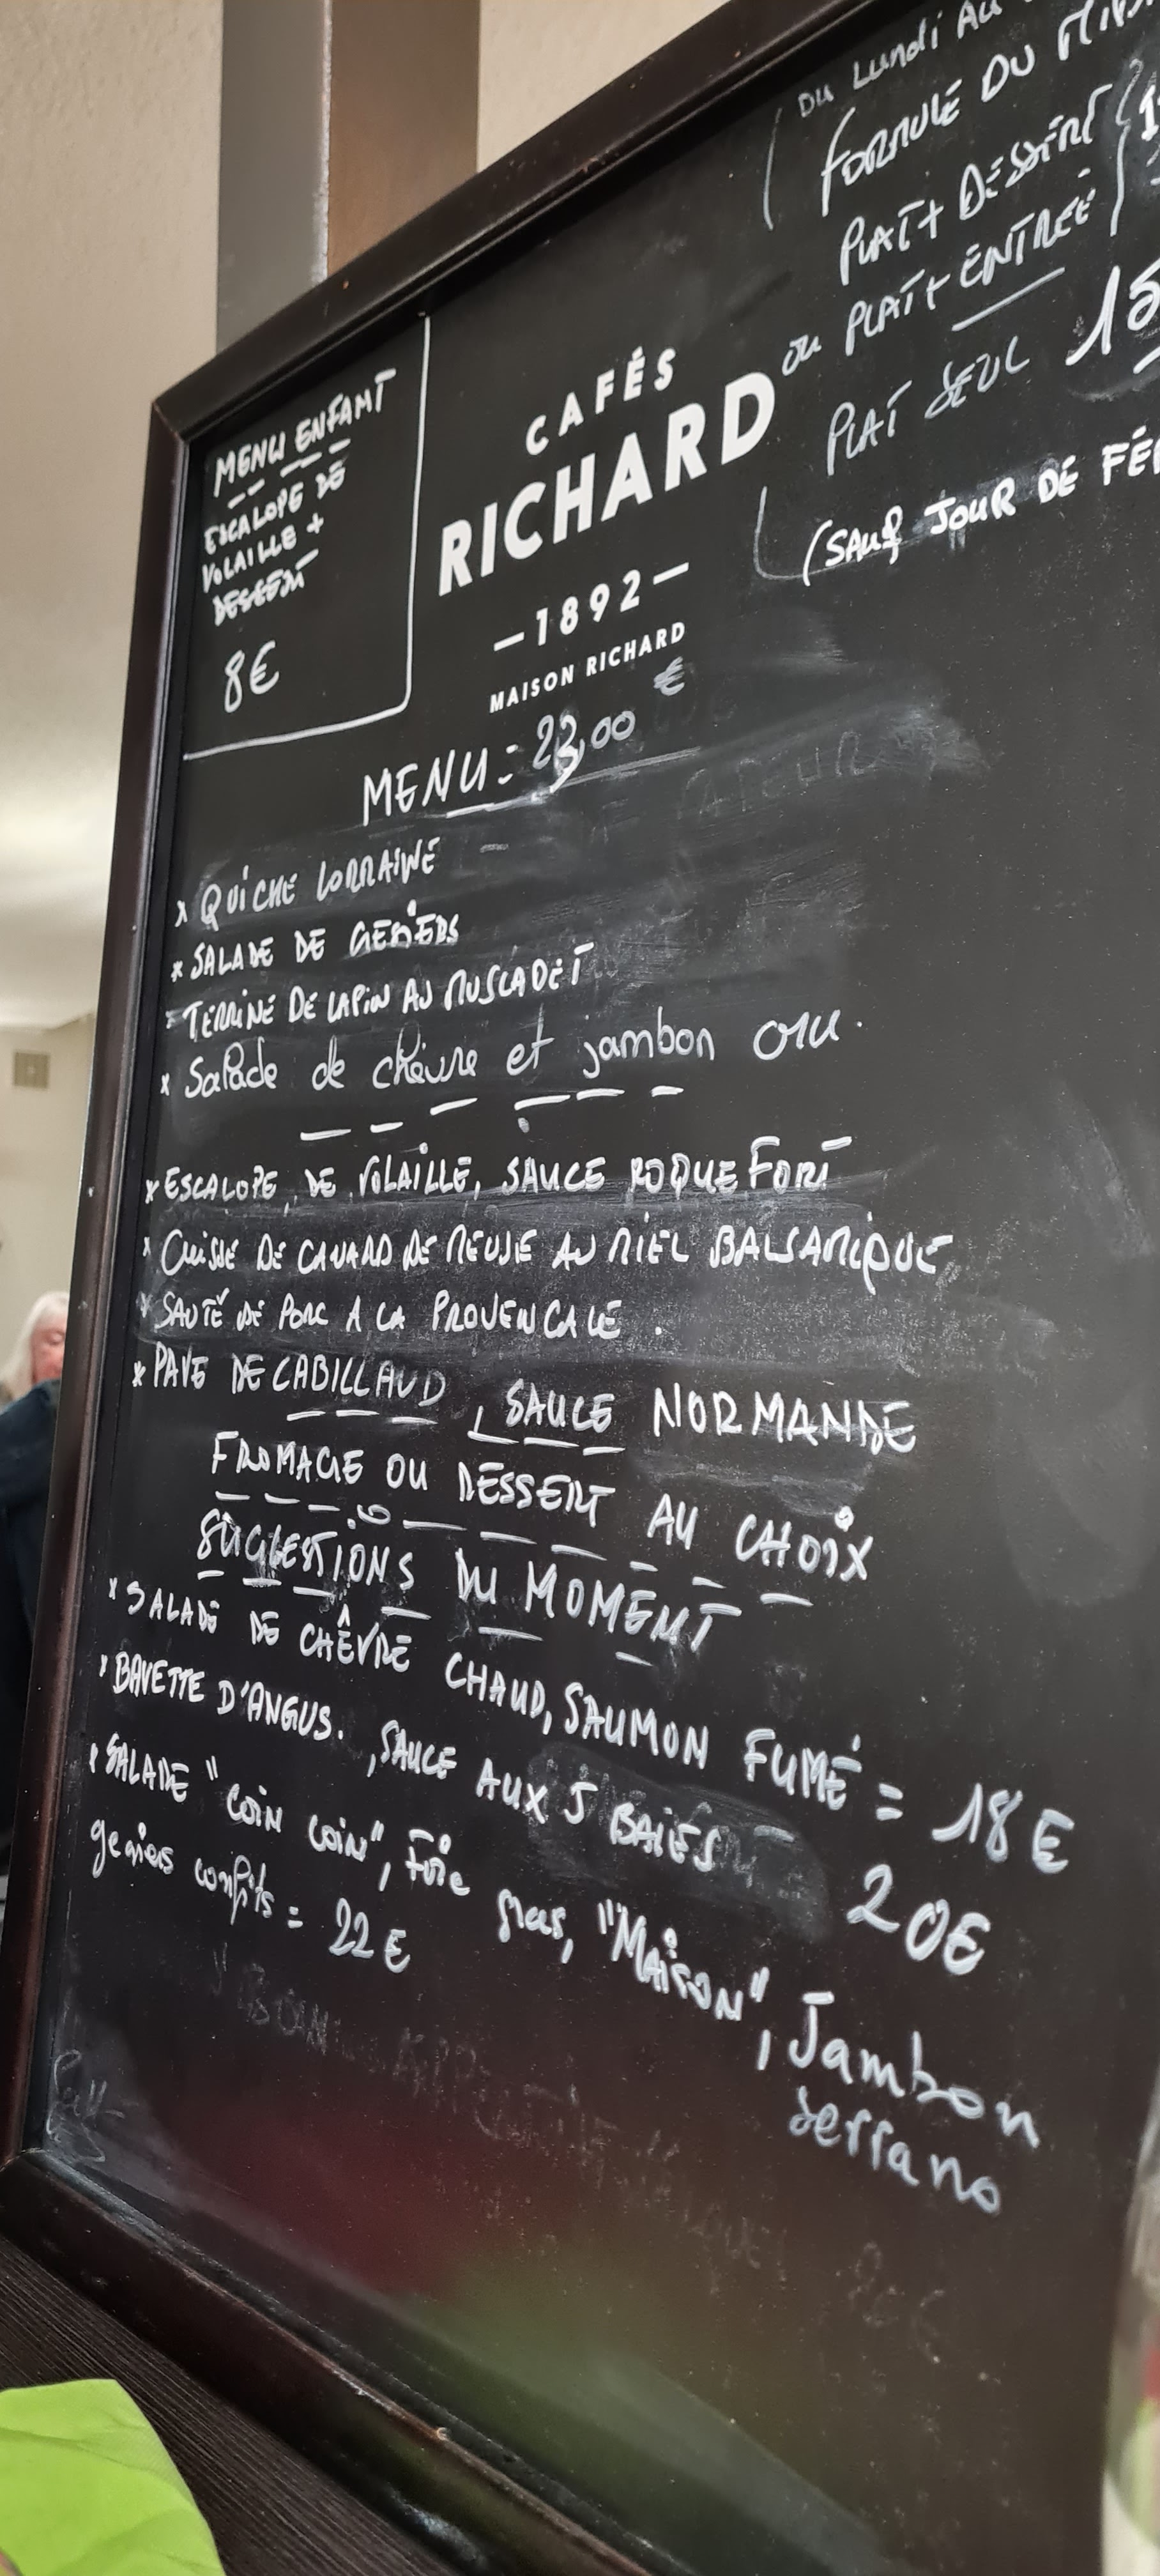 DU LUNDI AU
FORMULE DU
PLAT + DESSERT
OU PLAT + ENTREE
PLAT SEUL 15
(SAUF JOUR DE
MENU ENFANT
ESCALOPE DE
VOLAILLE +
DESSERT
8€
CAFÉS
RICHARD
—1892—
MAISON RICHARD
MENU = 23,00 €
* QUICHE LORRAINE
* SALADE DE GESIERS
* TERRINE DE LAPIN AU MUSCADET
* Salade de chèvre et jambon cru.
* ESCALOPE DE VOLAILLE, SAUCE ROQUEFORT
* CUISSE DE CANARD DE MEUSE AU MIEL BALSAMIQUE
* SAUTÉ DE PORC A LA PROVENCALE.
* PAVE DE CABILLAUD, SAUCE NORMANDE
FROMAGE OU DESSERT AU CHOIX
SUGGESTIONS DU MOMENT
* SALADE DE CHÊVRE CHAUD, SAUMON FUMÉ = 18€
* BAVETTE D'ANGUS. , SAUCE AUX 5 BAIES 20€
* SALADE "COIN COIN", Foie gras, "MAISON", Jambon
serrano
gesiers confits = 22€